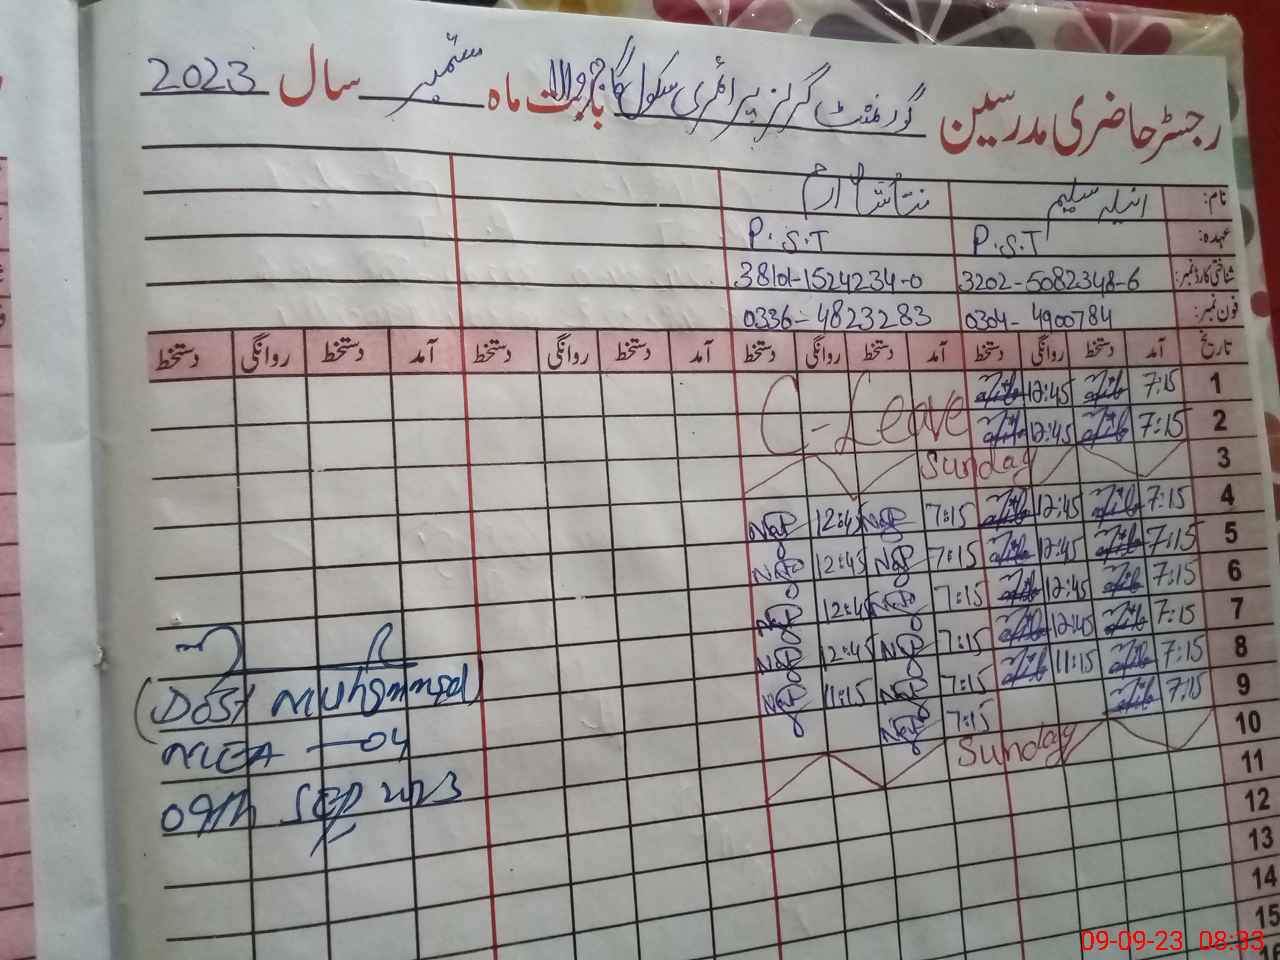 رجسٹر حاضری مدرسین گورنمنٹ گرلز پرائمری سکول بابت ماہ ستمبر سال 2023
نام: انیلہ سلیم
عہدہ: P.S.T P.S.T
شناختی کارڈ نمبر: 3202-5082348-6 38101-1524234-0
فون نمبر: 0304-4900784 0336-4823283
تاریخ آمد دستخط روانگی دستخط آمد دستخط روانگی دستخط آمد دستخط روانگی دستخط آمد دستخط روانگی دستخط
1 7:15 12:45 C-Leave
2 7:15 12:45
3 Sunday
4 7:15 12:45 7:15 12:45
5 7:15 12:45 7:15 12:45
6 7:15 12:45 7:15 12:45
7 7:15 12:45 7:15 12:45
8 7:15 11:15 7:15 11:15
9 7:15 7:15
10 Sunday
11
12
13
14
15
(Dost Muhammad)
MEA-04
09th SEP 2023
09-09-23 08:33